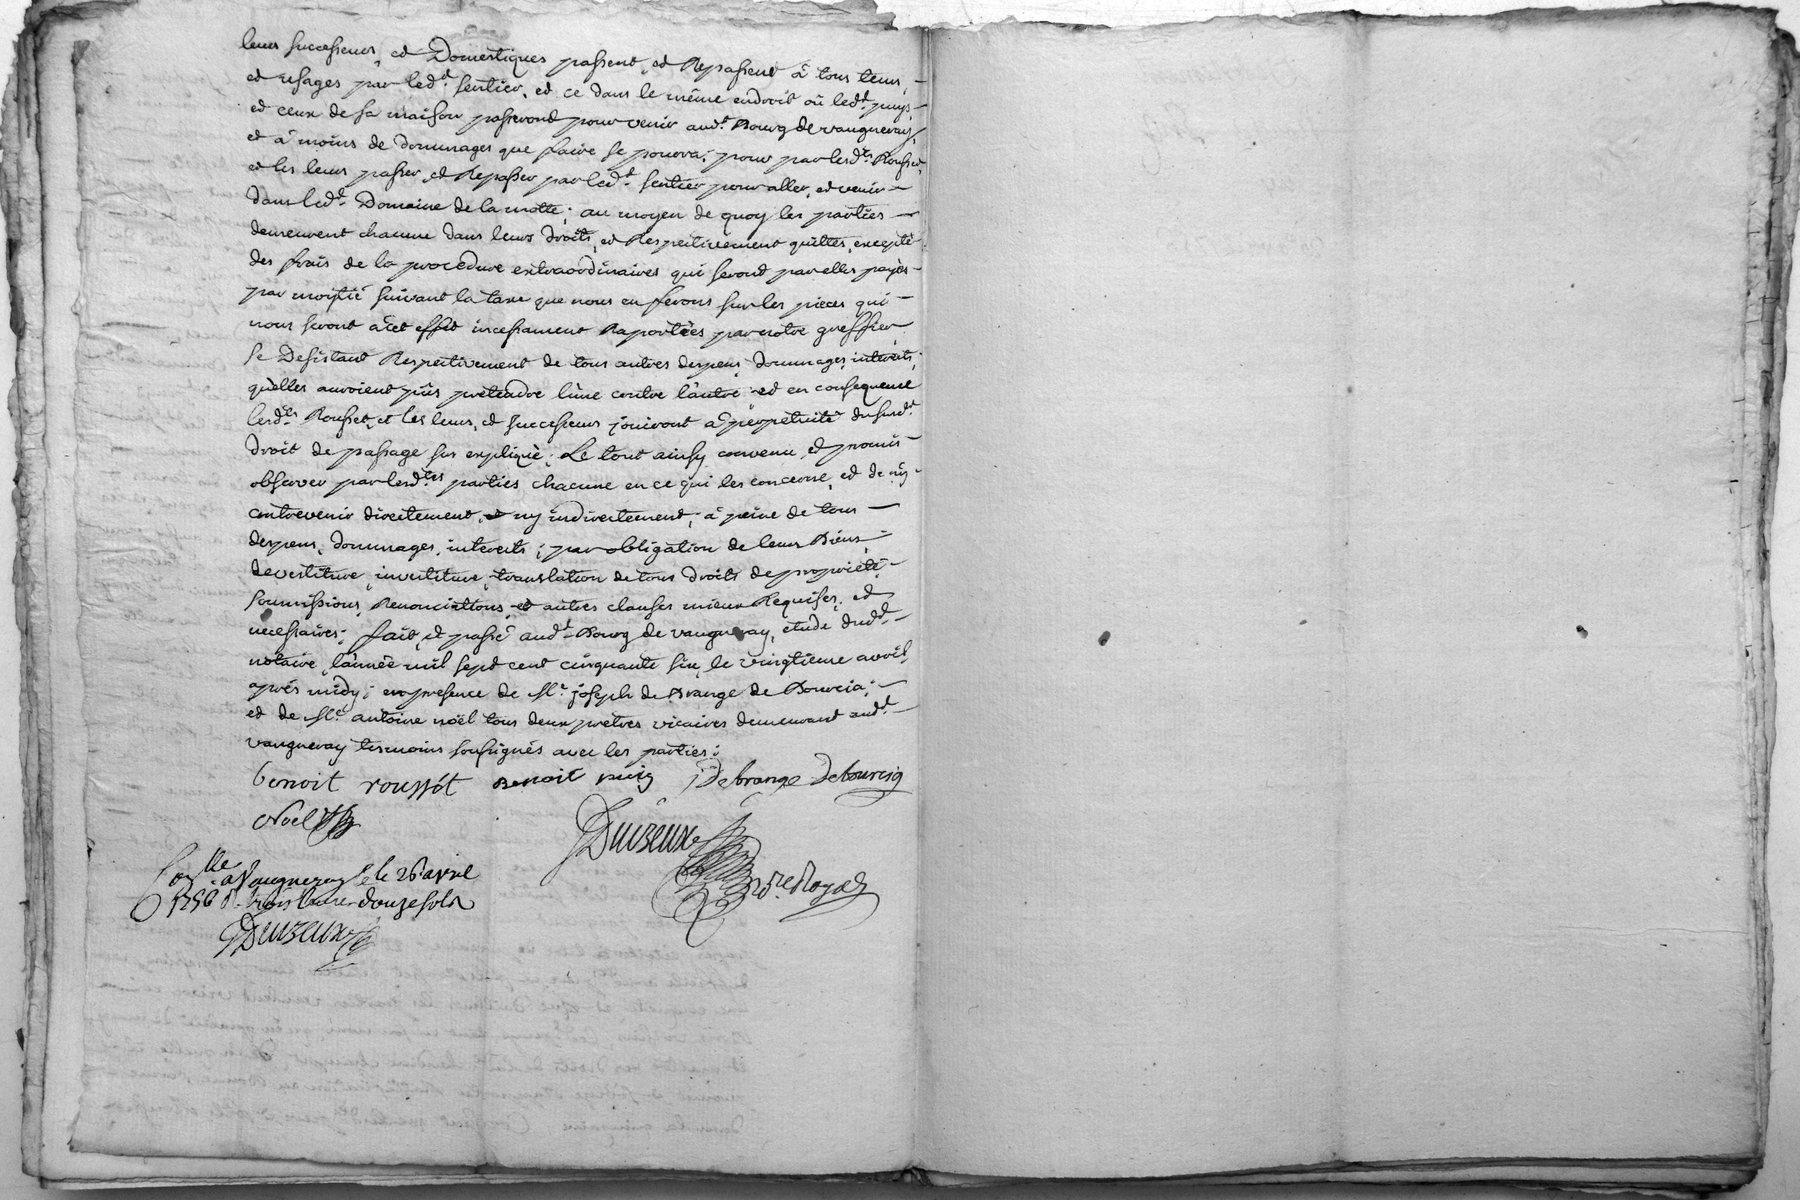 leurs successeurs, et Domestiques passent, et Repassent à tous tems,
et usages par led.t sentier, et ce dans le même endroit où led.t puys
et ceux de sa maison passeront pour venir aud.t Bourg de vaugneray,
et à moins de dommages que faire se pourra; pour par lesd.ts Rousset
et les leurs passer, et Repasser par led.t sentier pour aller, et venir
dans led.t Domaine de la motte; au moyen de quoy les parties
demeurent chacune dans leurs droits, et Respectivement quittes, excepté
des frais de la procedure extraordinaires qui seront par elles payés
par moytié suivant la taxe que nous en ferons sur les pieces qui
nous seront à cet effet incessament Raportées par notre greffier,
se Desistant Respectivement de tous autres despens dommages, interests,
qu'elles auroient pûs prétendre l'une contre l'autre et en consequence
lesd.ts Rousset, et les leurs, et successeurs jouiront à perpétuité du susd.t
droit de passage sus expliqué; Le tout ainsy convenu, et promis
observer par lesd.tes parties chacune en ce qui les concerne, et de n'y
contrevenir directement, ny indirectement; à peine de tous
despens, dommages, interests; par obligation de leurs Biens,
devestiture, investiture, translation de tous droits de proprieté,
soumissions, Renonciations et autres clauses mieux Requises, et
necessaires; fait, et passé aud.t Bourg de vaugneray, etude dud.t
notaire, l'année mil sept cent cinquante six, le vingtieme avril,
après midy; en presence de M.e joseph de Brange de Bourcia;
et de M.e antoine noël tous deux prêtres vicaires demeurant aud.t
vaugneray tesmoins soussignés avec les parties;
benoit roussét Benoit puis Debrange Debourcia
Noel
Duizeux
n.re Royal
Con.lle a Vaugneray le 26 avril
1756 R. trois livres douze sols
Duizeux